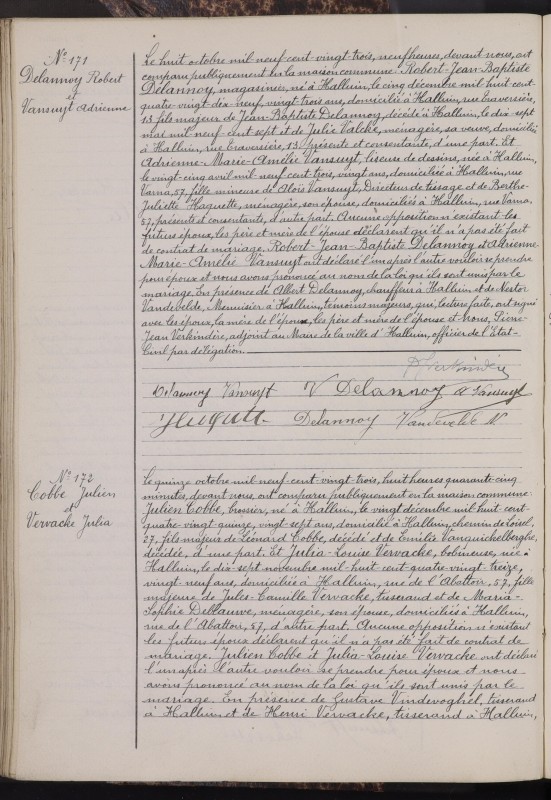 N° 171
Delannoy Robert
et
Vansuyt Adrienne
Le huit octobre mil neuf cent vingt trois, neuf heures, devant nous, ont
comparu publiquement en la maison commune Robert-Jean-Baptiste
Delannoy, magasinier, né à Halluin, le cinq décembre mil huit cent
quatre vingt dix-neuf, vingt trois ans, domicilié à Halluin, rue traversière,
13, fils majeur de Jean-Baptiste Delannoy, décédé à Halluin, le dix-sept
mai mil neuf cent sept et de Julie Valcke, ménagère, sa veuve, domiciliée
à Halluin, rue traversière, 13, présente et consentante, d'une part. Et
Adrienne-Marie-Amélie Vansuyt, liseuse de dessins, née à Halluin,
le vingt cinq avril mil neuf cent trois, vingt ans, domiciliée à Halluin, rue
Varna, 57, fille mineure de Aloïs Vansuyt, Directeur de tissage et de Berthe-
Juliette Huquette, ménagère, son épouse, domiciliés à Halluin, rue Varna,
57, présents et consentants, d'autre part. Aucune opposition n'existant les
futurs époux, les père et mère de l'épouse déclarent qu'il n'a pas été fait
de contrat de mariage. Robert-Jean-Baptiste Delannoy et Adrienne
Marie-Amélie Vansuyt ont déclaré l'un après l'autre vouloir se prendre
pour époux et nous avons prononcé au nom de la loi qu'ils sont unis par le
mariage. En présence de Albert Delannoy, chauffeur à Halluin et de Nestor
Vandevelde, Menuisier à Halluin, témoins majeurs, qui, lecture faite, ont signé
avec les époux, la mère de l'époux, les père et mère de l'épouse et Nous, Pierre-
Jean Verkindère, adjoint au Maire de la ville d'Halluin, officier de l'Etat-
Civil par délégation.
Verkindère
Delannoy Vansuyt V Delannoy A Vansuyt
Delannoy Vandevelde N
N° 172
Cobbe Julien
et
Vervacke Julia
Le quinze octobre mil neuf-cent-vingt-trois, huit heures quarante-cinq
minutes, devant nous, ont comparu publiquement en la maison commune
Julien Cobbe, brossier, né à Halluin, le vingt décembre mil huit cent-
quatre-vingt-quinze, vingt-sept ans, domicilié à Halluin, chemin de Loisel,
27, fils majeur de Léonard Cobbe, décédé et de Emilie Vanquickelberghe,
décédée, d'une part. Et Julia-Louise Vervacke, bobineuse, née à
Halluin, le dix-sept novembre mil-huit cent-quatre-vingt-treize,
vingt-neuf ans, domiciliée à Halluin, rue de l'Abattoir, 57, fille
majeure de Jules-Camille Vervacke, tisserand et de Marie-
Sophie Dellauve, ménagère, son épouse, domiciliés à Halluin,
rue de l'Abattoir, 57, d'autre part. Aucune opposition n'existant
les futurs époux déclarent qu'il n'a pas été fait de contrat de
mariage. Julien Cobbe et Julia-Louise Vervacke ont déclaré
l'un après l'autre vouloir se prendre pour époux et nous
avons prononcé au nom de la loi qu'ils sont unis par le
mariage. En présence de Gustave Vindevoghel, tisserand
à Halluin et de Henri Vervacke, tisserand à Halluin,